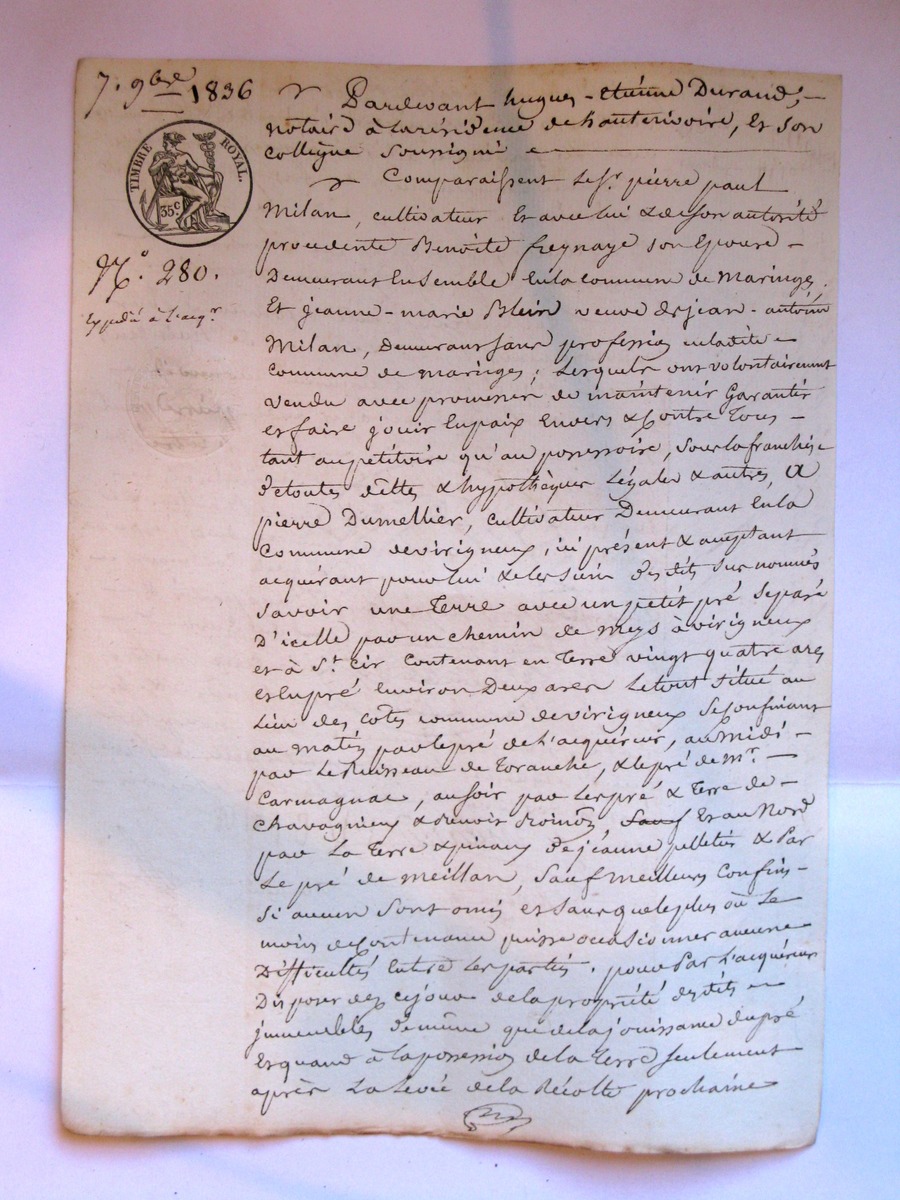 7. 9bre 1836
TIMBRE ROYAL.
35c
No. 280.
Expédié à l'acqr
Pardevant hugues-Etiénne Durand,
notaire à la résidence de hauterivoire, Et son
collègue soussigné
Comparaissent le Sr. pierre paul
Milan, cultivateur Et avec lui & de son autorité
procedente Benoite freynaye son Epouse
Demeurant Ensemble En la commune de Maringes
Et jeanne-marie Blein veuve de jean-antoine
Milan, Demeurant sans profession en ladite
commune de maringes; lesquels ont volontairement
vendu avec promesse de maintenir Garantir
et faire jouir En paix Envers & Contre Tous
tant au pétitoire qu'au possessoire, sous la franchise
de toutes dettes & hypothèques légales & autres, a
pierre Dumellier, cultivateur Demeurant En la
Commune de virigneux, ici présent & acceptant
acquérant pour lui & les siens des dits sus nommés
Savoir une Terre avec un petit pré separé
D'icelle par un chemin de meys à virigneux
et à St. Cir Contenant en Terre vingt quatre ares
et En pré environ Deux ares le tout situé au
Lieu des Côtes commune de virigneux se confinant
au matin par le pré de l'acquéreur, au midi
par le Ruisseau de Toranche, & le pré de Mr.
Carmagnac, au soir par les pré & Terre de
Chavagnieux & Benoit Et au Nord
par la Terre & pinaux de jeanne pulletié & Par
le pré de meillan, Sauf meilleurs Confins
Si aucun sont omis et sans que le plus où le
moins de Contenance puisse occasionner aucune
Difficultés Entre les parties. pour Par l'acquéreur
Disposer dez ce jour de la propriété des dits
immeubles de même que de la jouissance du pré
Et quand à la possession de la Terre seulement
après la Levée de la Récolte prochaine